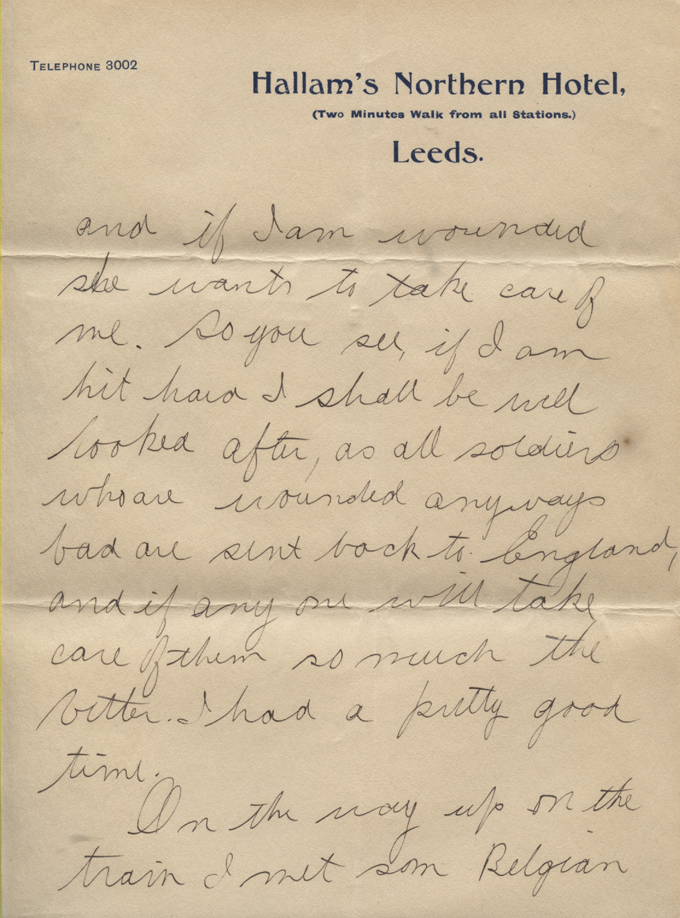 TELEPHONE 3002
Hallam's Northern Hotel,
(Two Minutes Walk from all Stations.)
Leeds.
and if I am wounded
she wants to take care of
me. So you see, if I am
hit hard I shall be well
looked after, as all soldiers
who are wounded anyways
bad are sent back to England,
and if any one will take
care of them so much the
better. I had a pretty good
time.
On the way up on the
train I met som Belgian